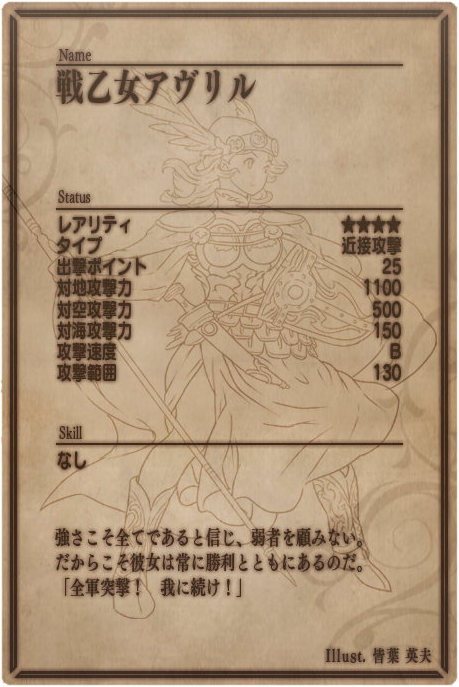 Name
戦乙女アヴリル
Status
レアリティ ★★★★
タイプ 近接攻撃
出撃ポイント 25
対地攻撃力 1100
対空攻撃力 500
対海攻撃力 150
攻撃速度 B
攻撃範囲 130
Skill
なし
強さこそ全てであると信じ、弱者を顧みない。
だからこそ彼女は常に勝利とともにあるのだ。
「全軍突撃！　我に続け！」
Illust. 皆葉 英夫